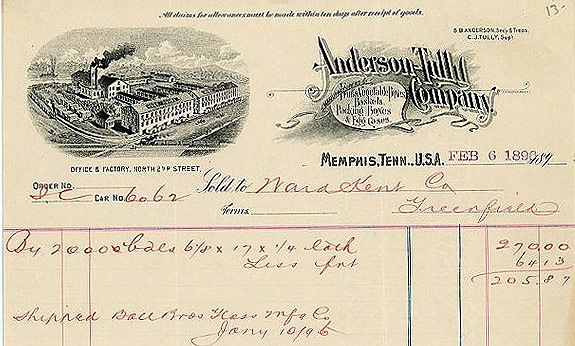 13-
All claims for allowances must be made within ten days after receipt of goods.
S.B. ANDERSON, Sec'y & Treas.
C.J. TULLY, Supt
Anderson-Tully
Company
Fruit & Vegetable Boxes
Baskets
Packing Boxes
& Egg Cases.
OFFICE & FACTORY, NORTH 2ND STREET,
MEMPHIS, TENN., U.S.A. FEB 6 189
ORDER NO. CAR NO. 6062 Sold to Ward Kent Co
Terms Greenfield
By 20000 6 1/8 x 17 x 1/4 270.00
Less frt 64 13
205.87
Shipped Ball Bros Mfg Co
Jany 10/96